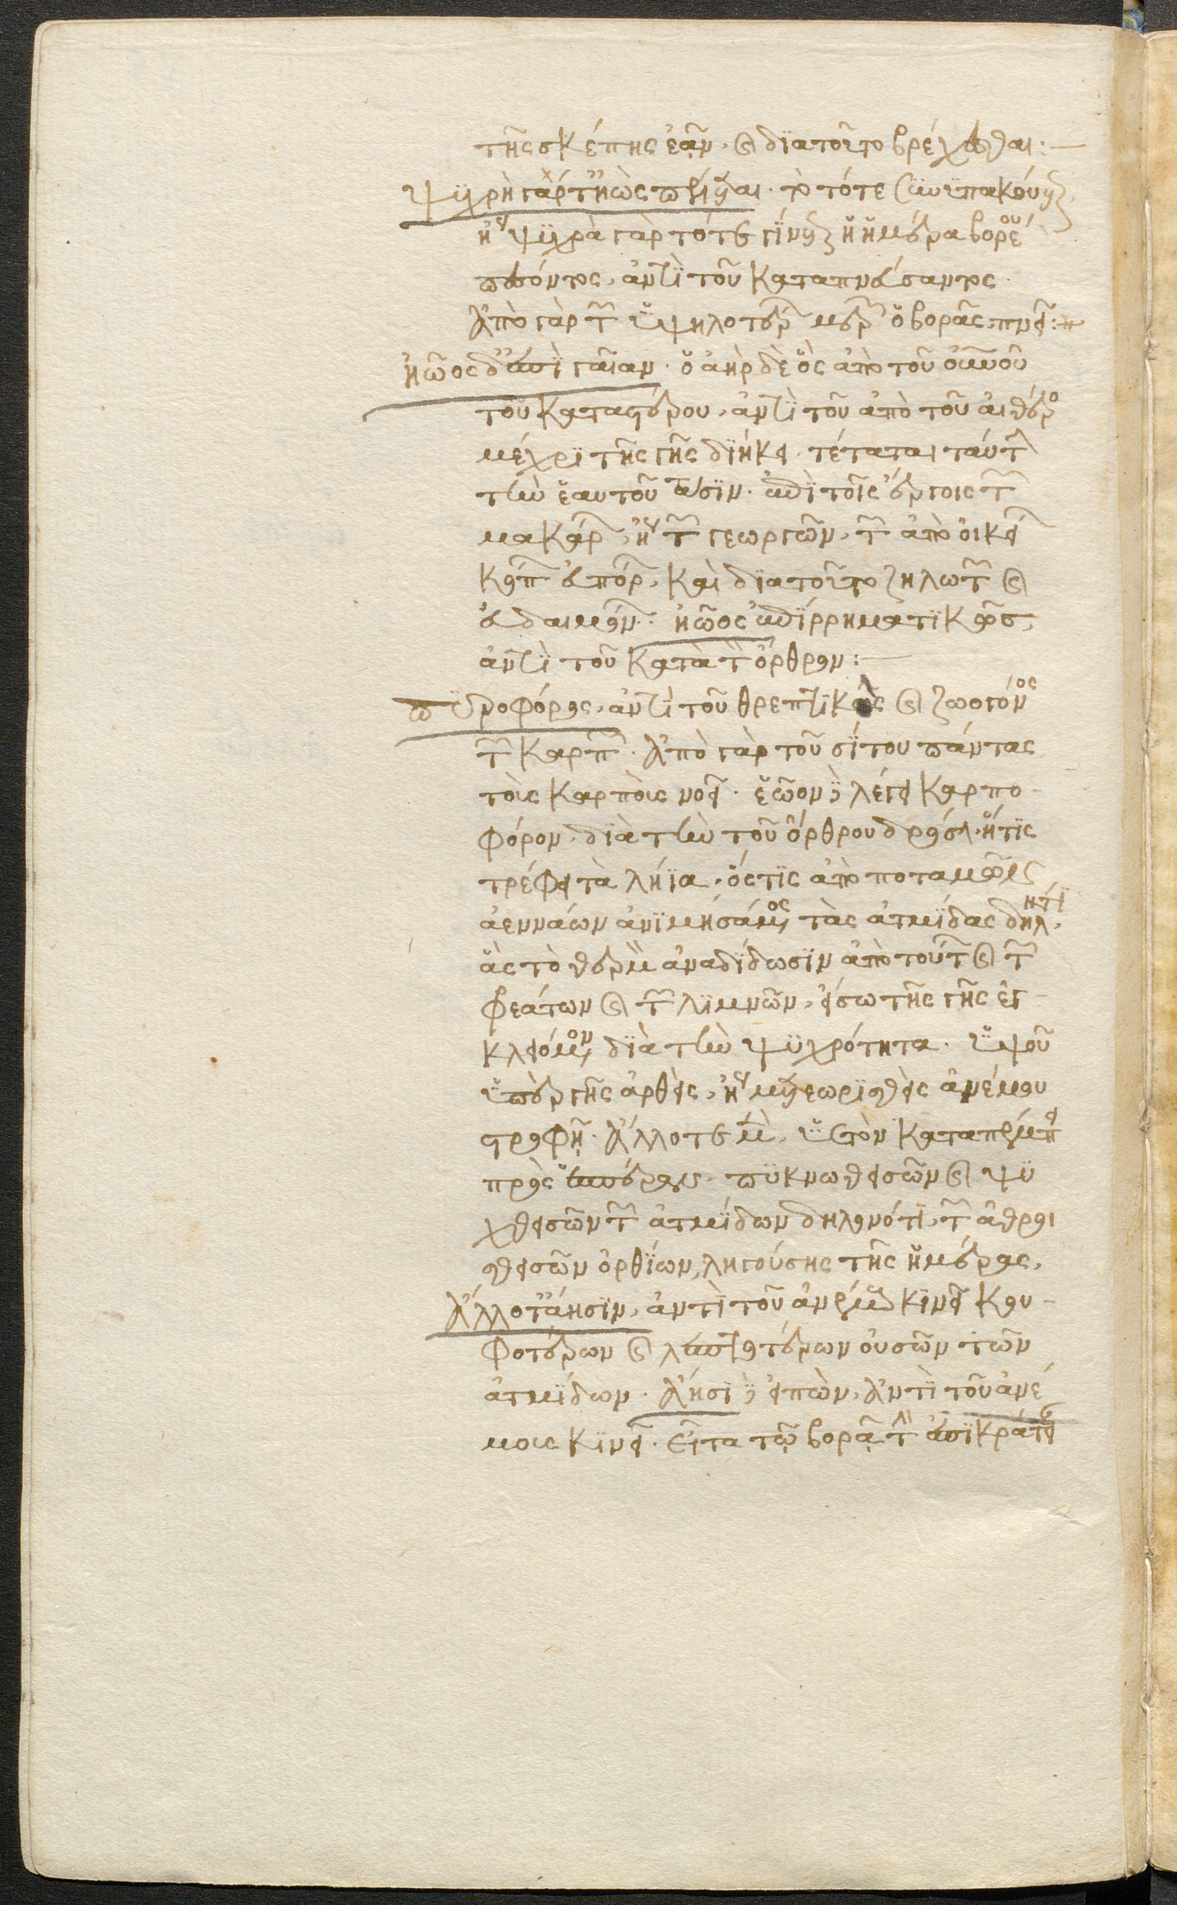 τῆς σκέπης ἐᾶν. καὶ διατοῦτο βρέχεσθαι:—
ψυχρὴ γὰρ τ' ἠὼς πέλεται. τὸ τότε συνυπακούεται
ἤγουν ψυχρὰ γὰρ τότε γίνεται ἡ ἡμέρα βορέου
πεσόντος, ἀντὶ τοῦ καταπνεύσαντος.
Ἀπὸ γὰρ τῶν ὑψηλοτέρων μερῶν ὁ βορᾶς πνεῖ:—
ἠῷος δ' ἐπὶ γαῖαν. ὁ ἀὴρ δὲ ὁ ἕως ἀπὸ τοῦ οὐρανοῦ
τοῦ καταστέρου, ἀντὶ τοῦ ἀπὸ τοῦ αἰθέρος
μέχρι τῆς γῆς διήκει. τέταται ταύτην
τὴν ἑαυτοῦ τάσιν. ἐπὶ τοῖς ἔργοις τῶν
μακάρων, ἤγουν τῶν γεωργῶν, τῶν ἀπὸ οἰκείων
κόπων εὐπόρων, καὶ διατοῦτο ζηλωτῶν καὶ
εὐδαιμόνων. ἠῷος ἐπιρρηματικῶς,
ἀντὶ τοῦ κατὰ τὸν ὄρθρον:—
πυροφόρος, ἀντὶ τοῦ θρεπτικὸς καὶ ζωογόνος
τῶν καρπῶν. Ἀπὸ γὰρ τοῦ σίτου πάντας
τοὺς καρποὺς νοεῖ. ἑῷον δὲ λέγει καρπο
φόρον, διὰ τὴν τοῦ ὄρθρου δρόσον, ἥτις
τρέφει τὰ λήϊα, ὅστις ἀπὸ ποταμῶν
ἀεννάων ἀνιμησάμενος τὰς ἀτμίδας δηλονότι,
ἃς τὸ θερμὸν ἀναδίδωσιν ἀπὸ τούτων καὶ τῶν
φρεάτων καὶ τῶν λιμνῶν, εἴσω τῆς γῆς ἐγ
κλειόμενον διὰ τὴν ψυχρότητα. ὑψοῦ
ὑπὲρ γῆς ἀρθεὶς, ἤγουν μετεωρισθεὶς ἀνέμου
στροφῇ. Ἄλλοτε μὲν, ὑετὸν καταπέμπει
πρὸς ἑσπέρας. πυκνωθεισῶν καὶ ψυ
χθεισῶν τῶν ἀτμίδων δηλονότι, τῶν ἀθροι
σθεισῶν ὀρθίων, ληγούσης τῆς ἡμέρας,
Ἄλλοτ' ἄησιν, ἀντὶ τοῦ ἀνέμους κινεῖ κου
φοτέρων καὶ λεπτοτέρων οὐσῶν τῶν
ἀτμίδων. Ἄησι δὲ εἰπὼν, Ἀντὶ τοῦ ἀνέ
μοις κινεῖ. εἶτα τῷ βορᾷ τὴν ἐπικράτειαν